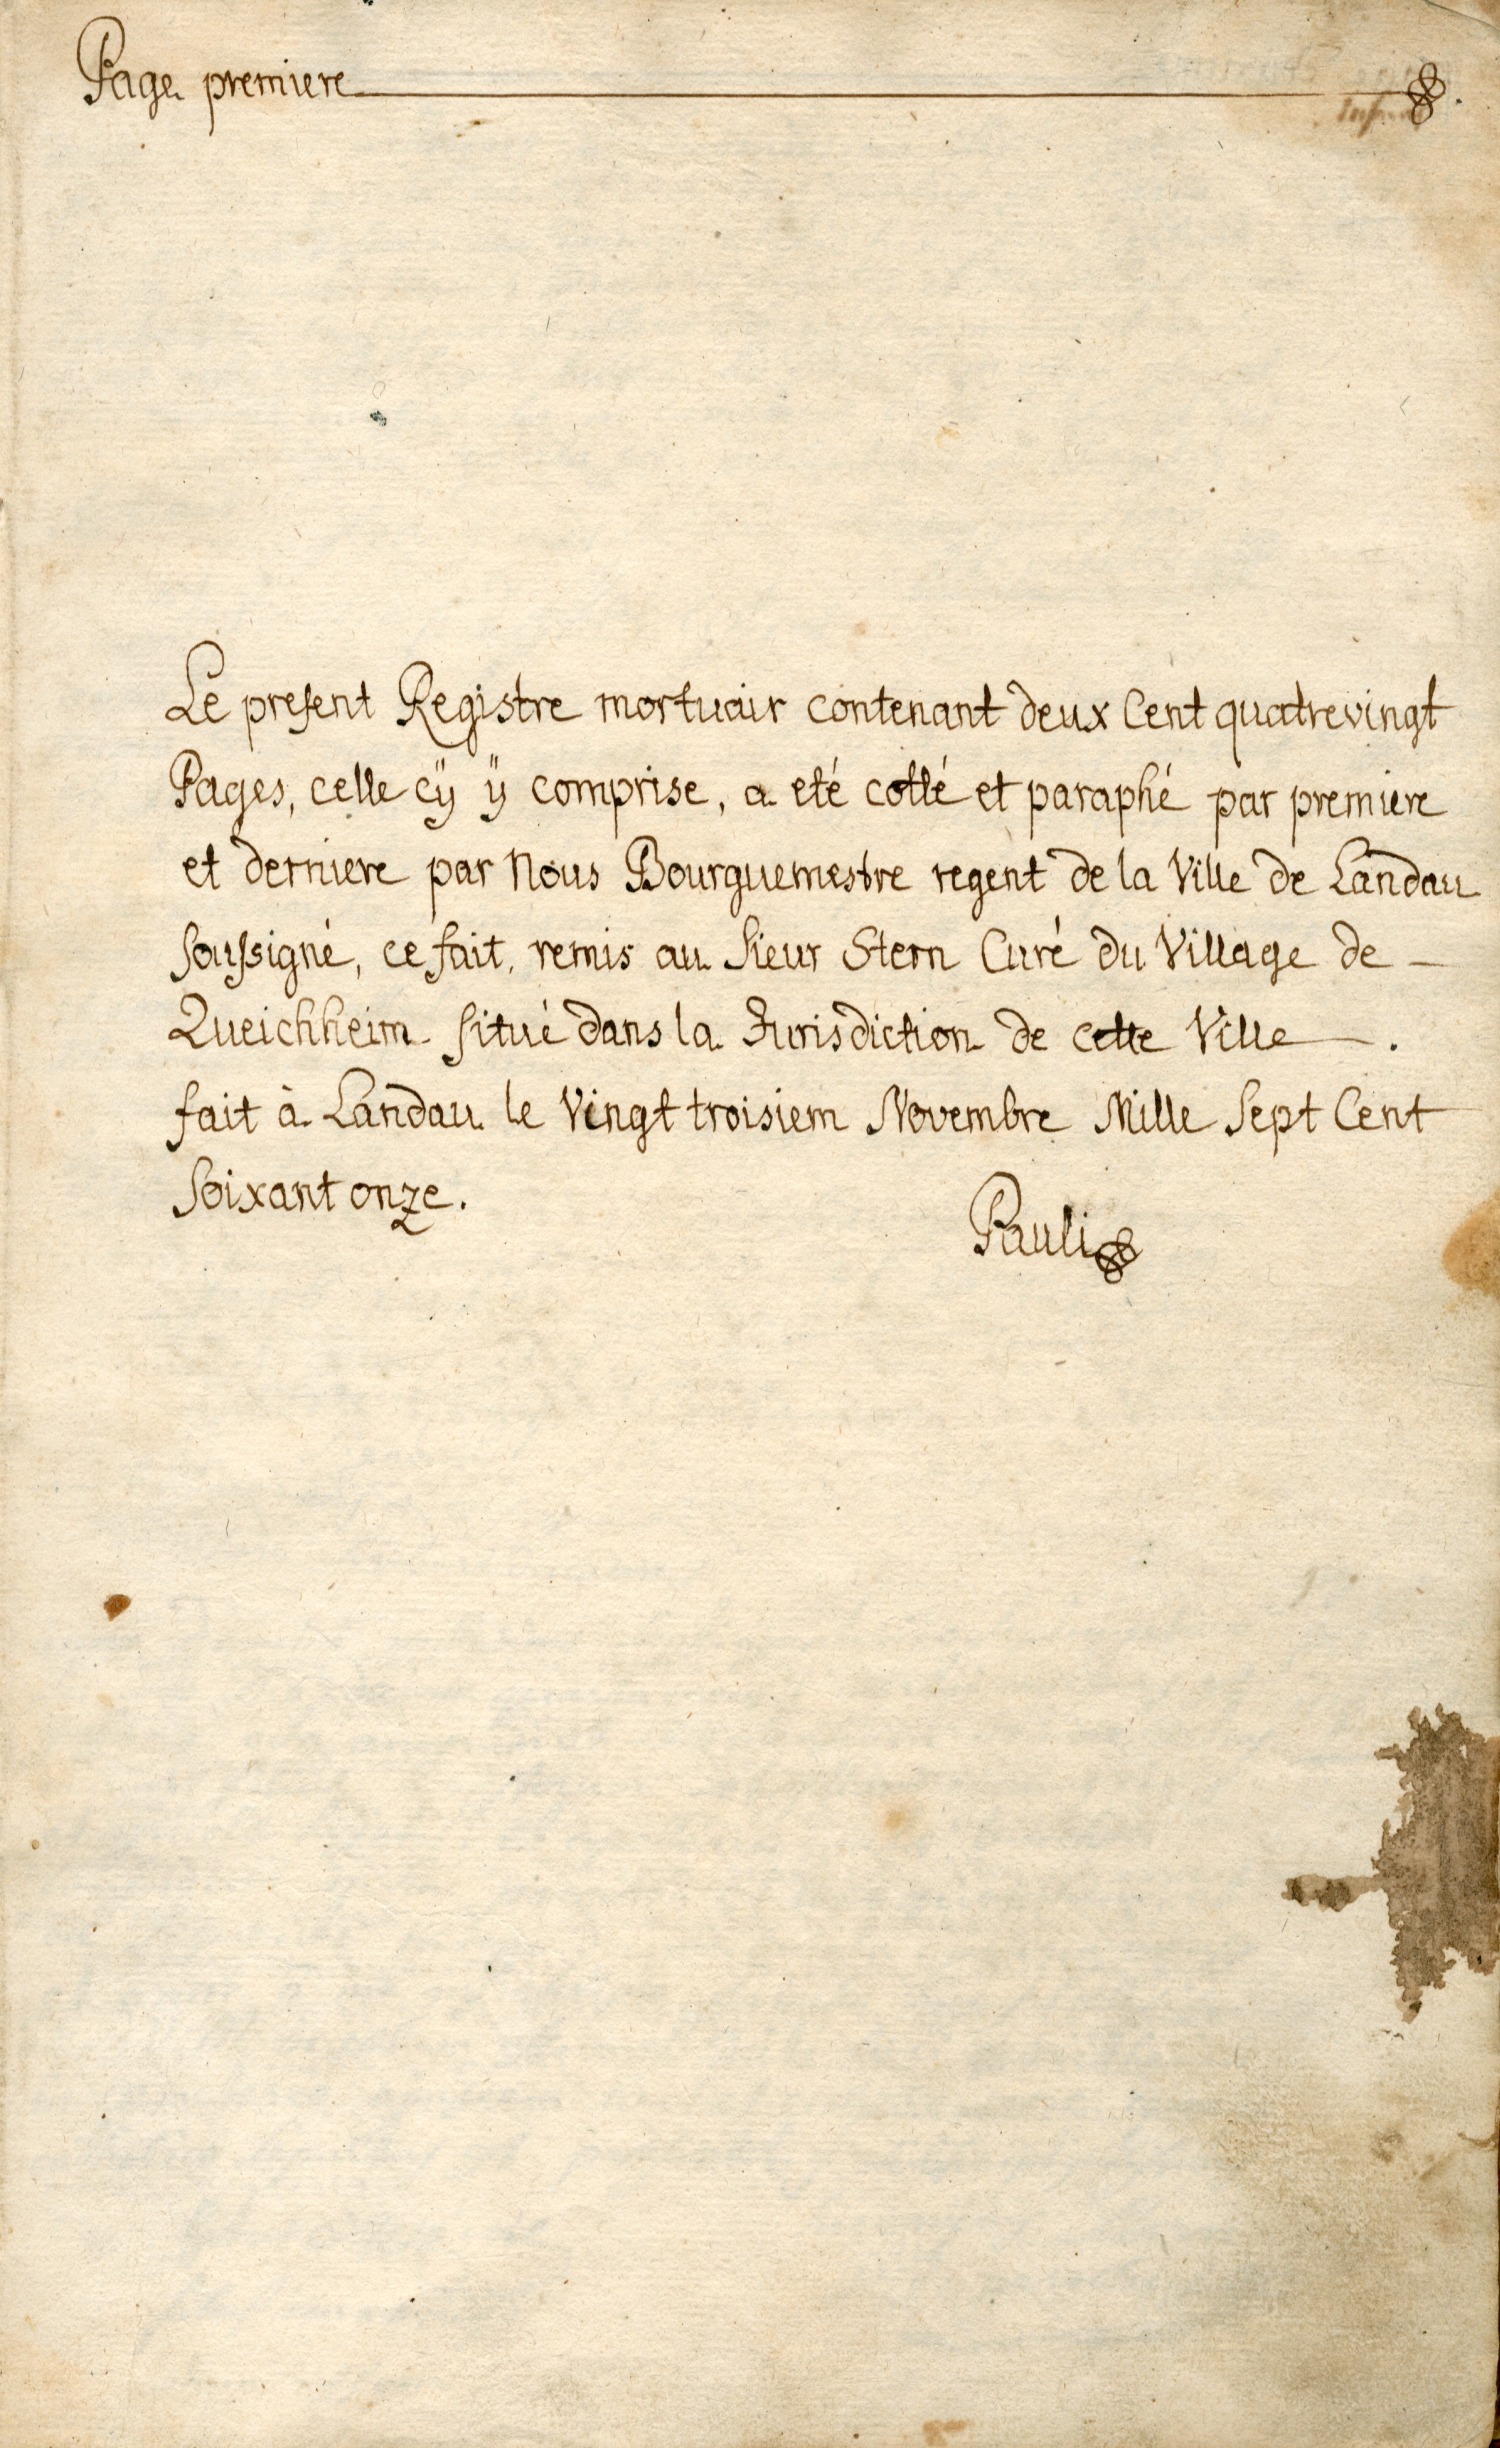 Page premiere
Le present Registre mortuair contenant deux Cent quatrevingt
Pages, celle cÿ ÿ comprise, a eté cotté et paraphé par premiere
et derniere par Nous Bourguemestre regent de la Ville de Landau
soussigné, ce fait, remis au Sieur Stern Curé du Village de -
Queichheim situé dans la Jurisdiction de cette Ville.
fait à Landau le Vingt troisiem Novembre Mille Sept Cent
Soixant onze.
Pauli